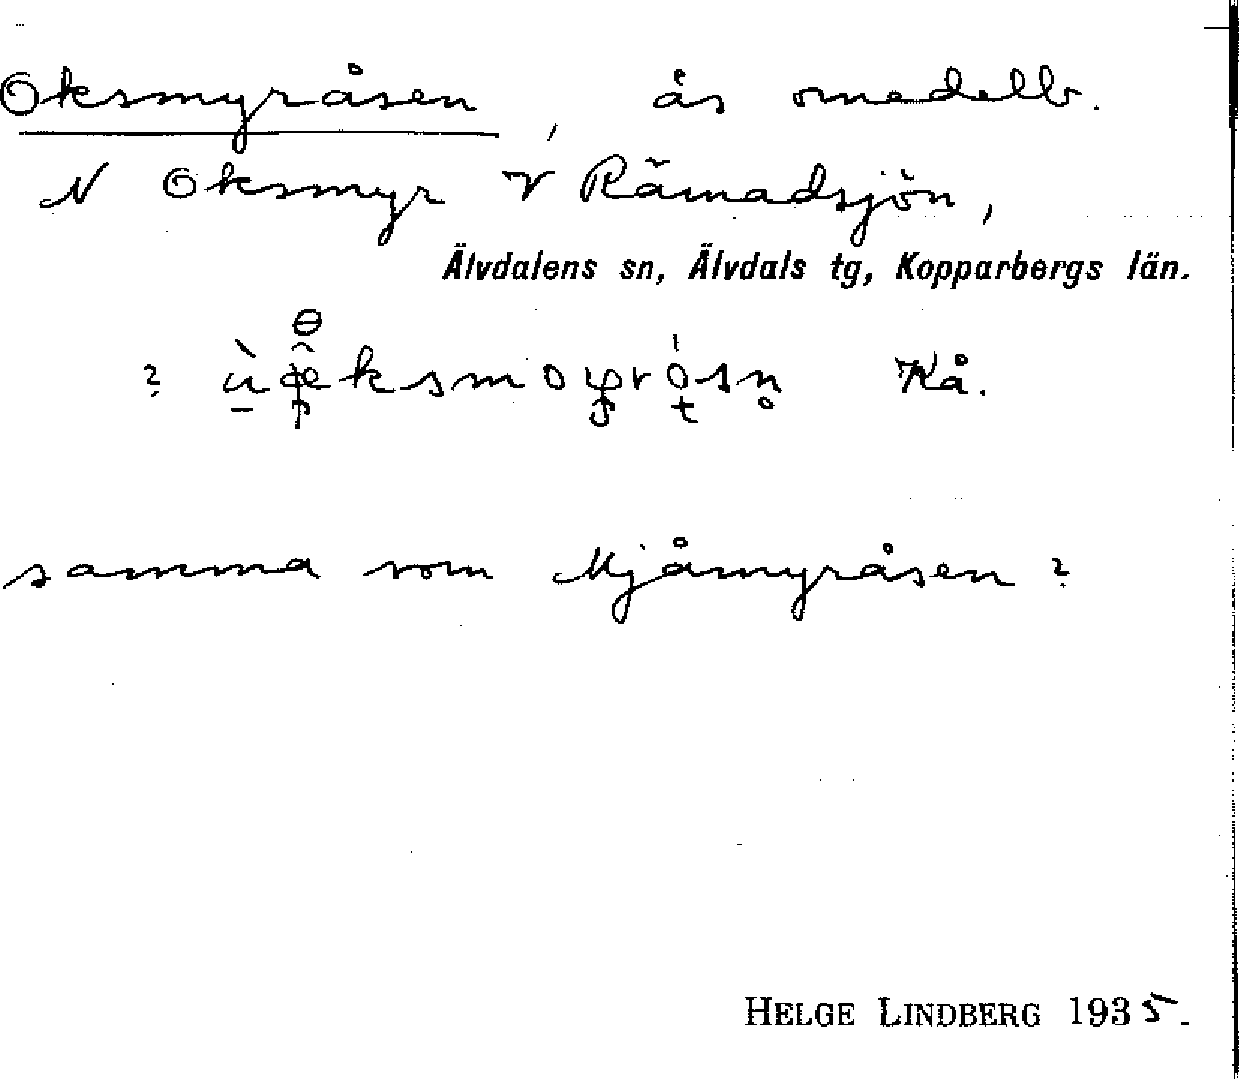 Oksmyråsen, ås omedelb.
N Oksmyr V Råmadsjön,
Älvdalens sn, Älvdals tg, Kopparbergs län.
? Kå.
samma som Mjåmyråsen?
HELGE LINDBERG 1935.